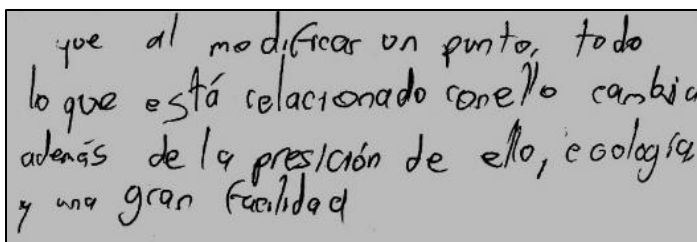 que al modificar un punto, todo
lo que está relacionado con ello cambia
además de la presición de ello, ecología
y una gran facilidad